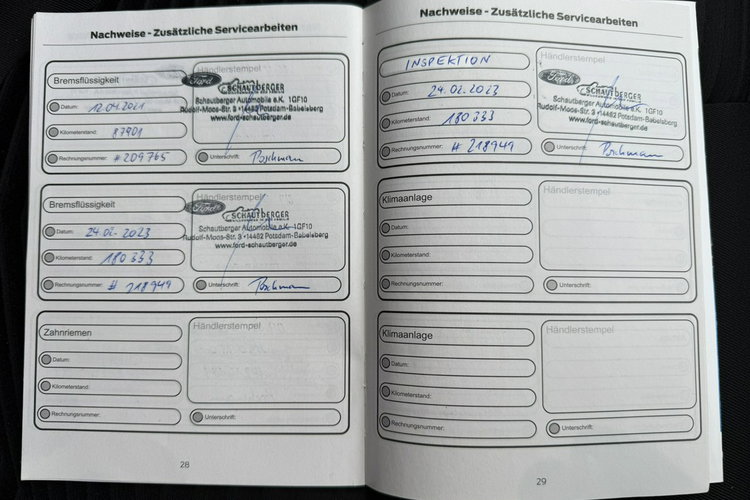 Nachweise - Zusätzliche Servicearbeiten
Bremsflüssigkeit
Händlerstempel
Ford
SCHAUTBERGER
Schautberger Automobile e.K. 1GF10
Rudolf-Moos-Str. 3 •14482 Potsdam-Babelsberg
www.ford-schautberger.de
Datum: 12.04.2021
Kilometerstand: 87901
Rechnungsnummer: #209765
Unterschrift:
Bremsflüssigkeit
Händlerstempel
Ford
SCHAUTBERGER
Schautberger Automobile e.K. 1GF10
Rudolf-Moos-Str. 3 •14482 Potsdam-Babelsberg
www.ford-schautberger.de
Datum: 24.02.2023
Kilometerstand: 180333
Rechnungsnummer: # 218949
Unterschrift:
Zahnriemen
Händlerstempel
Datum:
Kilometerstand:
Rechnungsnummer:
Unterschrift:
28
Nachweise - Zusätzliche Servicearbeiten
INSPEKTION
Händlerstempel
Ford
SCHAUTBERGER
Schautberger Automobile e.K. 1GF10
Rudolf-Moos-Str. 3 •14482 Potsdam-Babelsberg
www.ford-schautberger.de
Datum: 24.02.2023
Kilometerstand: 180333
Rechnungsnummer: # 218949
Unterschrift:
Klimaanlage
Händlerstempel
Datum:
Kilometerstand:
Rechnungsnummer:
Unterschrift:
Klimaanlage
Händlerstempel
Datum:
Kilometerstand:
Rechnungsnummer:
Unterschrift:
29